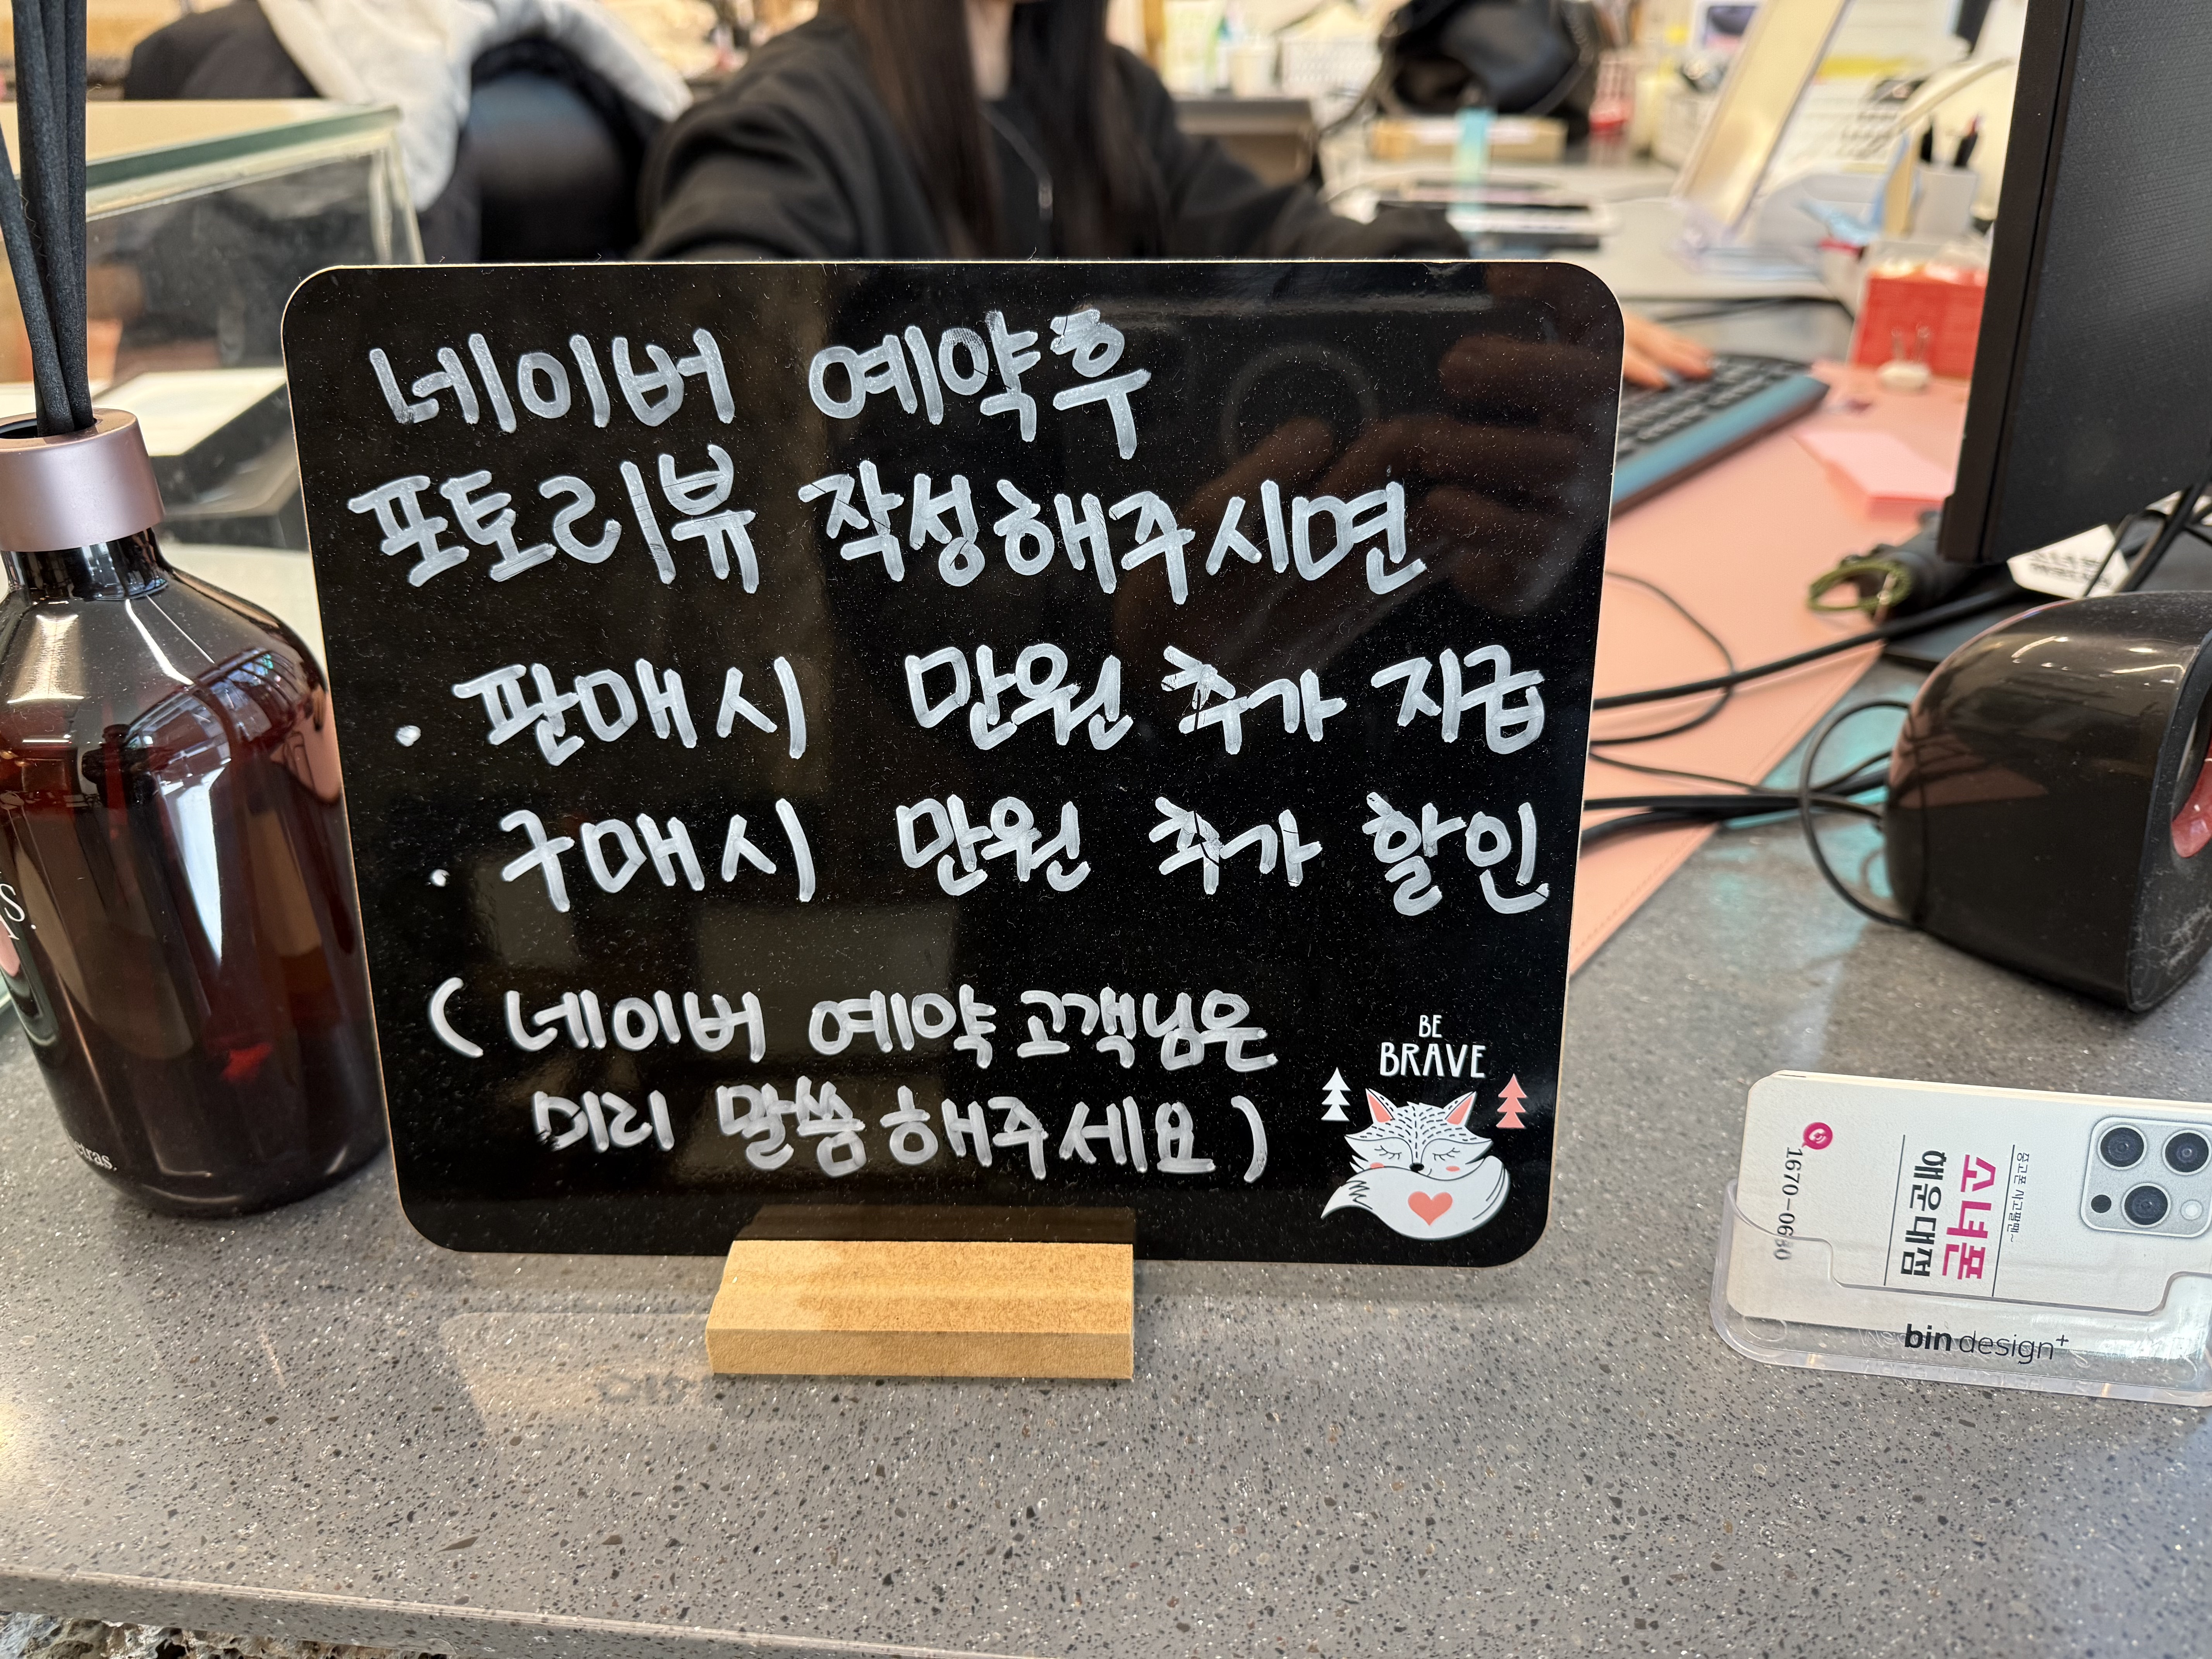 네이버 예약후
포토리뷰 작성해주시면
· 판매시 만원 추가 지급
· 구매시 만원 추가 할인
( 네이버 예약 고객님은
미리 말씀해주세요 )
BE
BRAVE
s.
etras.
소녀폰
해운대점
1670-0680
bin design+